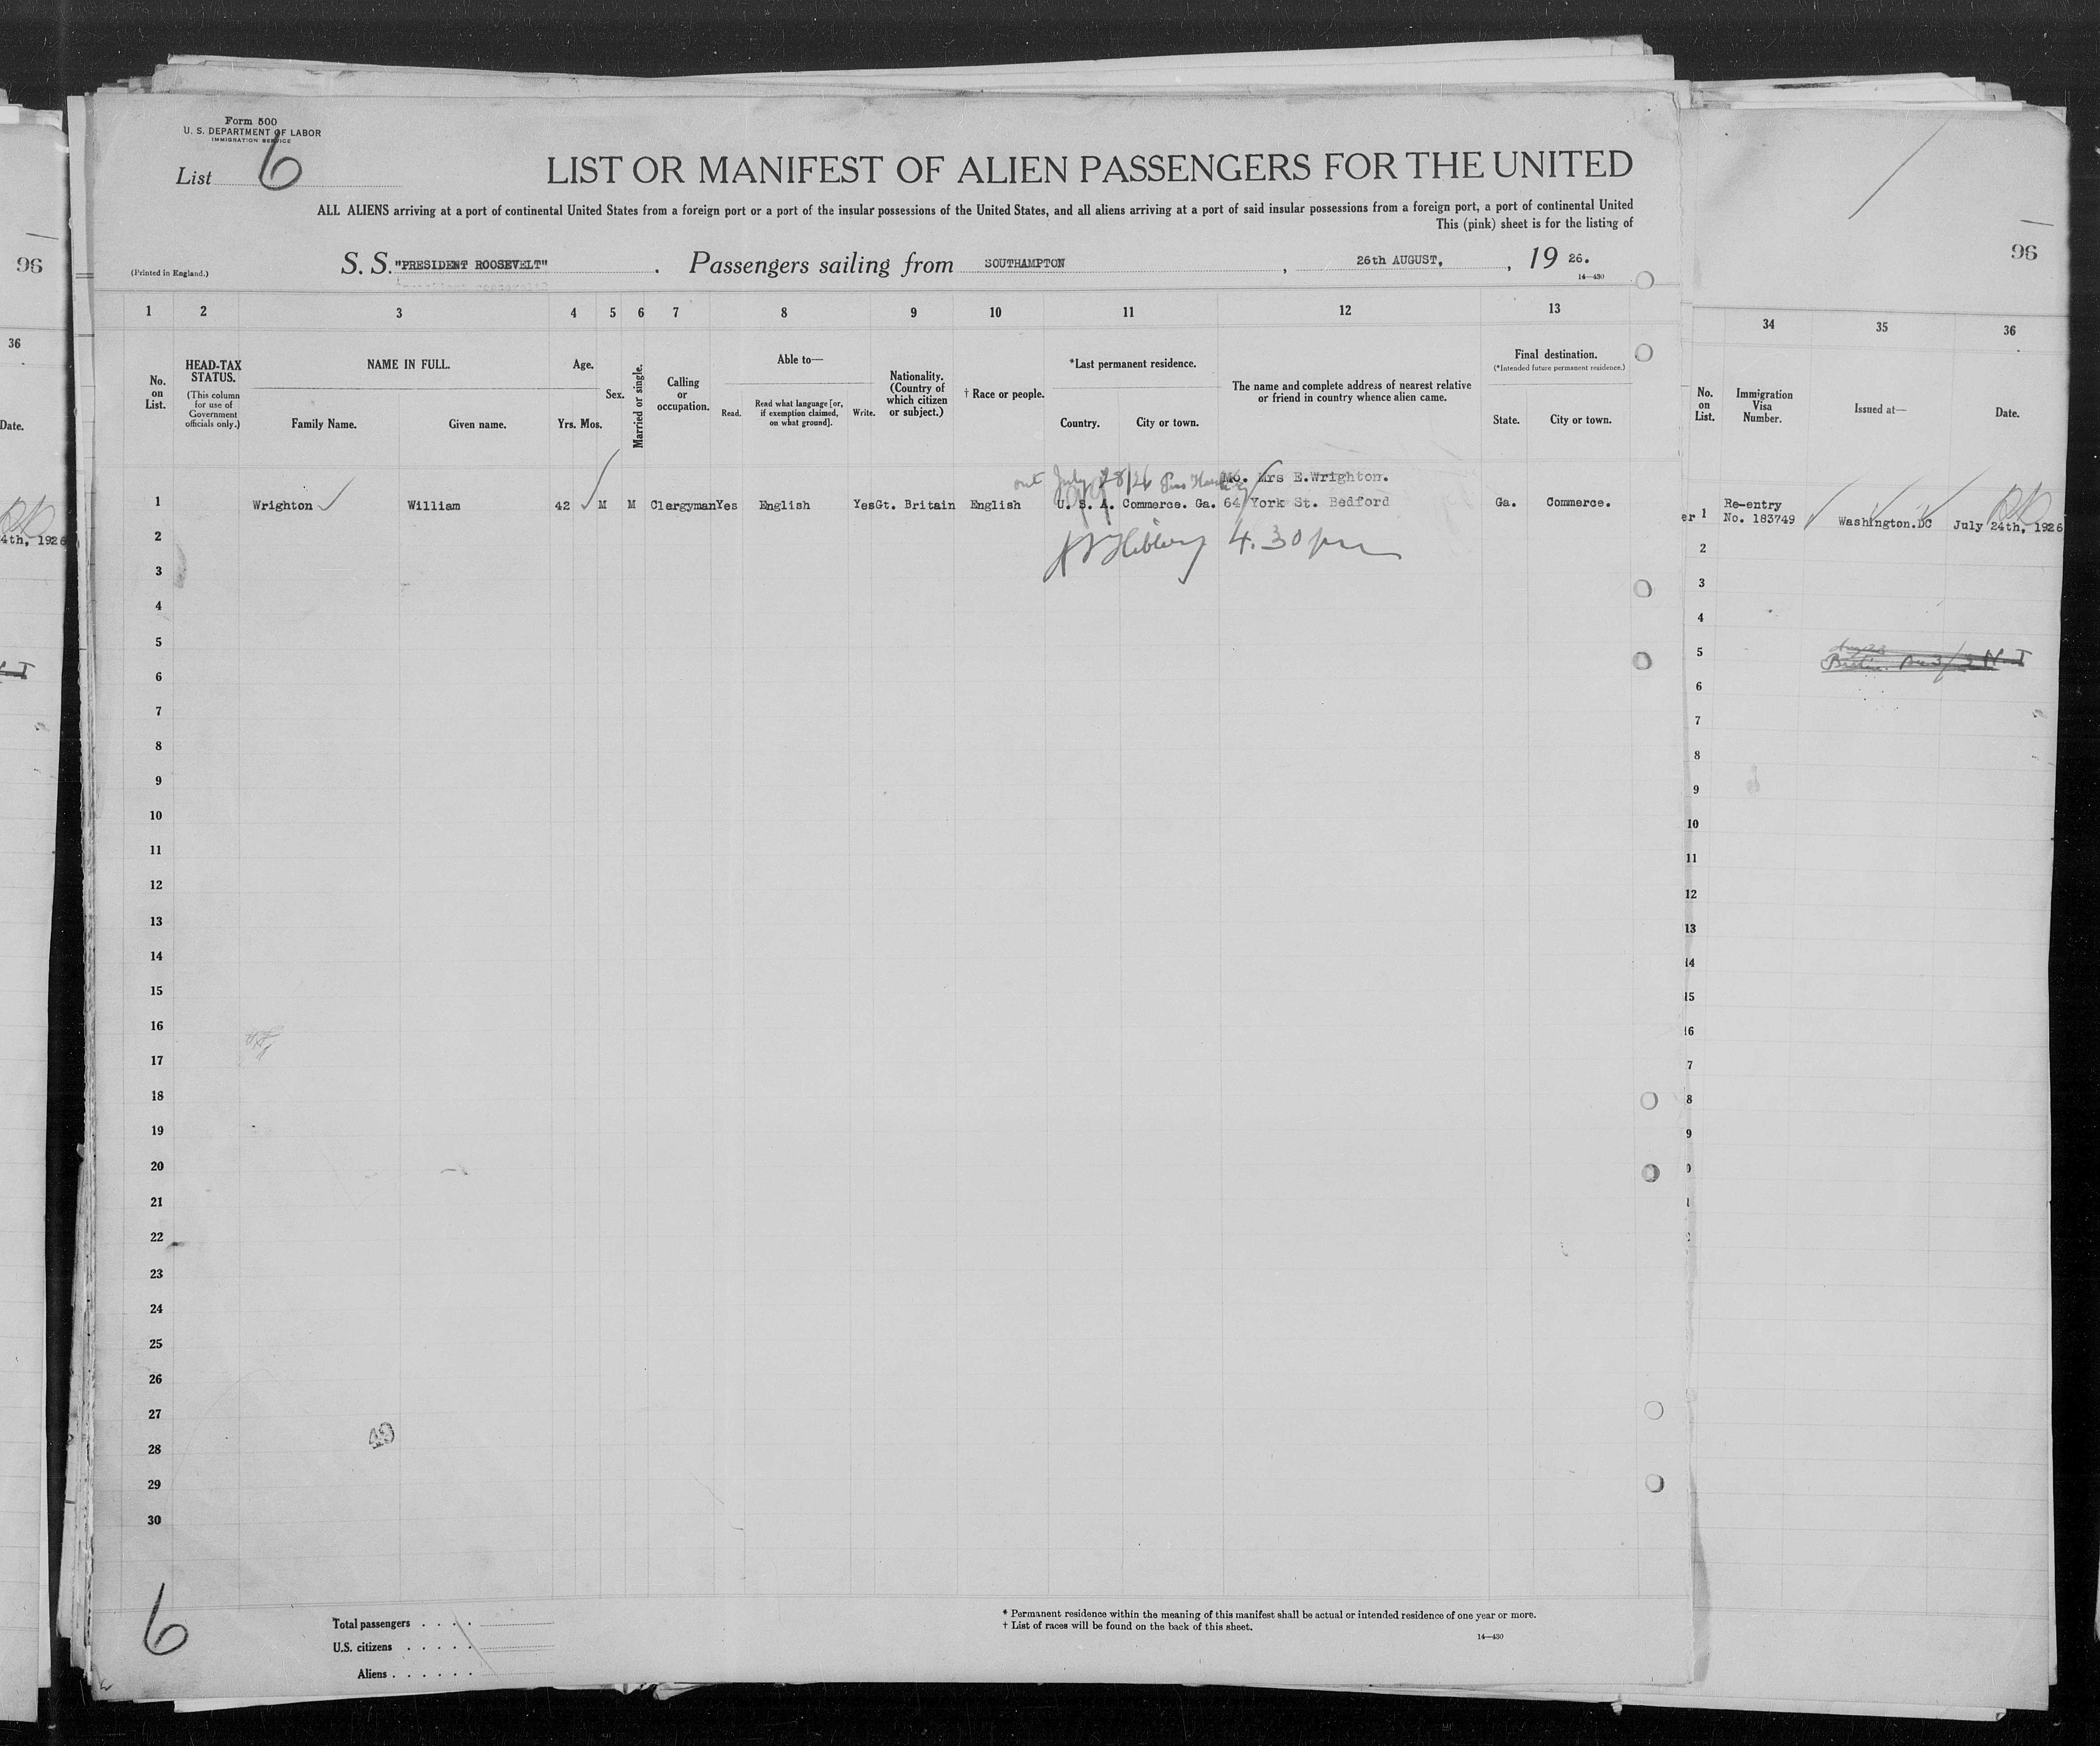 Form 500
U. S. DEPARTMENT OF LABOR
IMMIGRATION SERVICE
List 6
LIST OR MANIFEST OF ALIEN PASSENGERS FOR THE UNITED
ALL ALIENS arriving at a port of continental United States from a foreign port or a port of the insular possessions of the United States, and all aliens arriving at a port of said insular possessions from a foreign port, a port of continental United
This (pink) sheet is for the listing of
(Printed in England.)
S. S. "PRESIDENT ROOSEVELT" . Passengers sailing from SOUTHAMPTON , 26th AUGUST, , 19 26.
14—430
1 2 3 4 5 6 7 8 9 10 11 12 13
No. on List.
HEAD-TAX STATUS.
(This column for use of Government officials only.)
NAME IN FULL.
Family Name. Given name.
Age.
Yrs. Mos.
Sex.
Married or single.
Calling or occupation.
Able to—
Read. Read what language [or, if exemption claimed, on what ground]. Write.
Nationality. (Country of which citizen or subject.)
† Race or people.
*Last permanent residence.
Country. City or town.
The name and complete address of nearest relative or friend in country whence alien came.
Final destination.
(*Intended future permanent residence.)
State. City or town.
out July 28/26 Pres Harding
Mo. Mrs E.Wrighton.
1 Wrighton William 42 M M Clergyman Yes English Yes Gt. Britain English U. S. A. Commerce. Ga. 64 York St. Bedford Ga. Commerce.
4.30 pm
2
3
4
5
6
7
8
9
10
11
12
13
14
15
16
17
18
19
20
21
22
23
24
25
26
27
28
29
30
49
6
Total passengers . . . .
U.S. citizens . . . . .
Aliens . . . . . .
* Permanent residence within the meaning of this manifest shall be actual or intended residence of one year or more.
† List of races will be found on the back of this sheet.
14—430
96
36
Date.
4th, 1926
96
34 35 36
No. on List.
Immigration Visa Number.
Issued at—
Date.
er 1 Re-entry No. 183749 Washington.DC July 24th, 1926
2
3
4
5
6
7
8
9
10
11
12
13
14
15
16
7
8
9
0
1